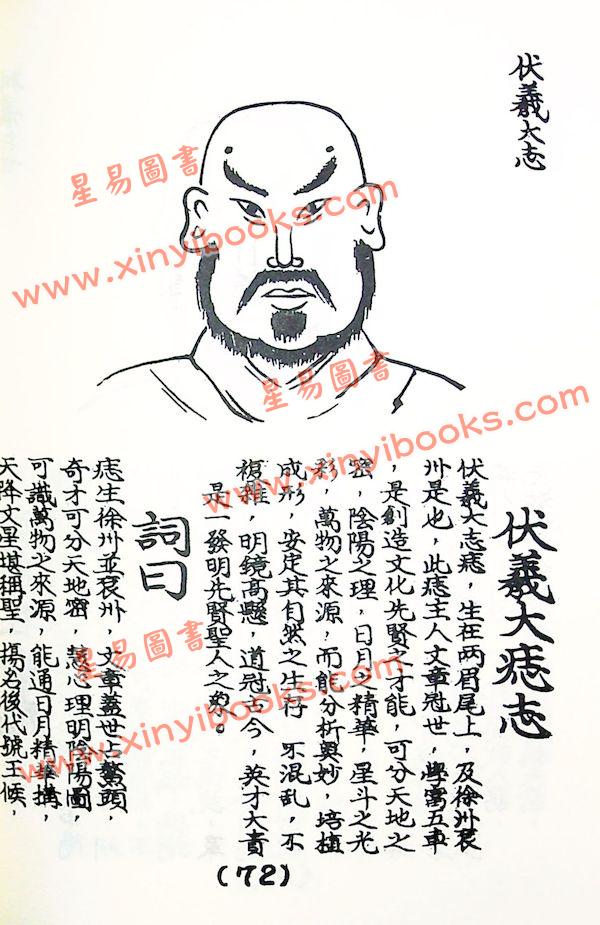 伏羲大志
伏羲大痣志
伏羲大志痣，生在两眉尾上，及徐州袞
州是也，此痣主人文章冠世，學富五車
，是創造文化先賢之才能，可分天地之
密，陰陽之理，日月之精華，星斗之光
彩，萬物之來源，而能分析奥妙，培植
成形，安定其自然之生存，不混乱，不
複雜，明鏡高懸，道冠古今，英才大貴
是一發明先賢聖人之。
詞曰
痣生徐州並袞州，文章蓋世占鰲頭，
奇才可分天地密，慧心理明陰陽圖，
可識萬物之來源，能通日月精華搆，
天降文星堪稱聖，揚名後代號王候，
(72)
星易圖書
www.xinyibooks.com
星易圖書
www.xinyibooks.com
星易圖書
www.xinyibooks.com